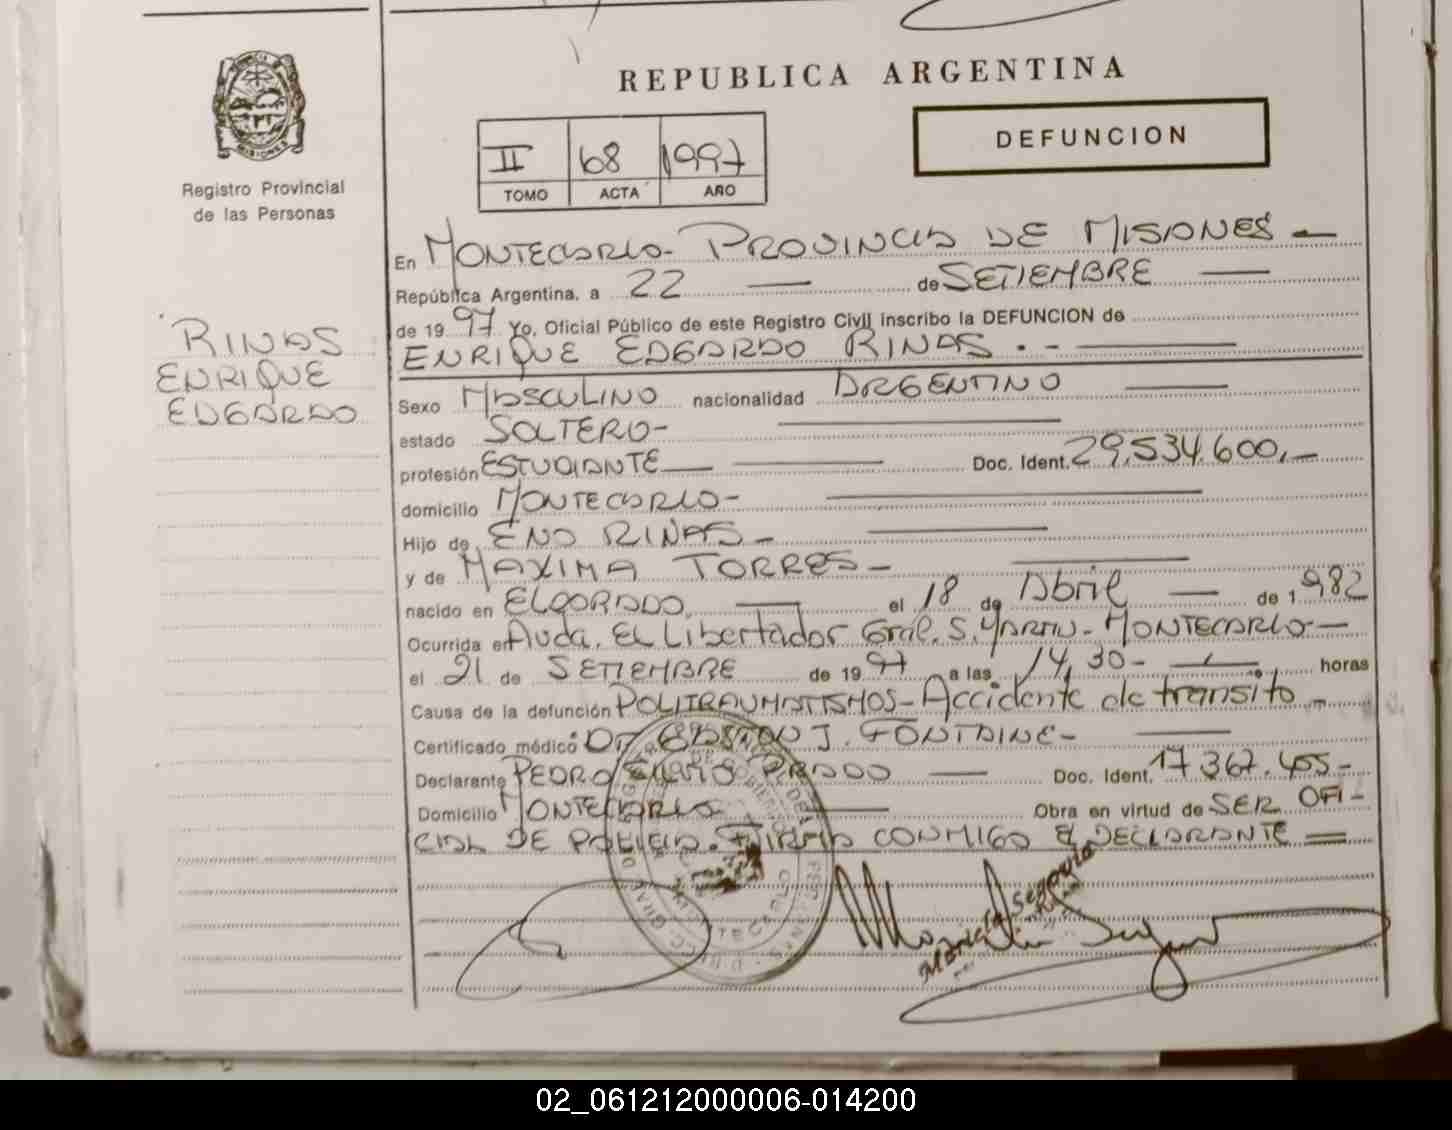 REPUBLICA ARGENTINA
DEFUNCION
II 68 1997
TOMO ACTA AÑO
PROVINCIA DE
MISIONES
Registro Provincial
de las Personas
RINAS
ENRIQUE
EDGARDO
En MONTECARLO - PROVINCIA DE MISIONES -
República Argentina, a 22 — de SETIEMBRE —
de 19 97 Yo, Oficial Público de este Registro Civil inscribo la DEFUNCION de
ENRIQUE EDGARDO RINAS . - —
Sexo MASCULINO nacionalidad ARGENTINO —
estado SOLTERO - —
profesión ESTUDIANTE — — Doc. Ident. 29.534.600.-
domicilio MONTECARLO - —
Hijo de ENO RINAS - —
y de MAXIMA TORRES - —
nacido en ELDORADO. — el 18 de Abril — de 1 982
Ocurrida en Avda. El Libertador Gral. S. MARTIN - MONTECARLO -
el 21 de SETIEMBRE de 19 97 a las 14,30 - — horas
Causa de la defunción POLITRAUMATISMOS - Accidente de transito -
Certificado médico Dr GASTON J. FONTAINE - —
Declarante PEDRO PRADO — Doc. Ident. 17.367.455 -
Domicilio MONTECARLO — Obra en virtud de SER OFI-
CIAL DE POLICIA. FIRMA CONMIGO EL DECLARANTE =
02_061212000006-014200